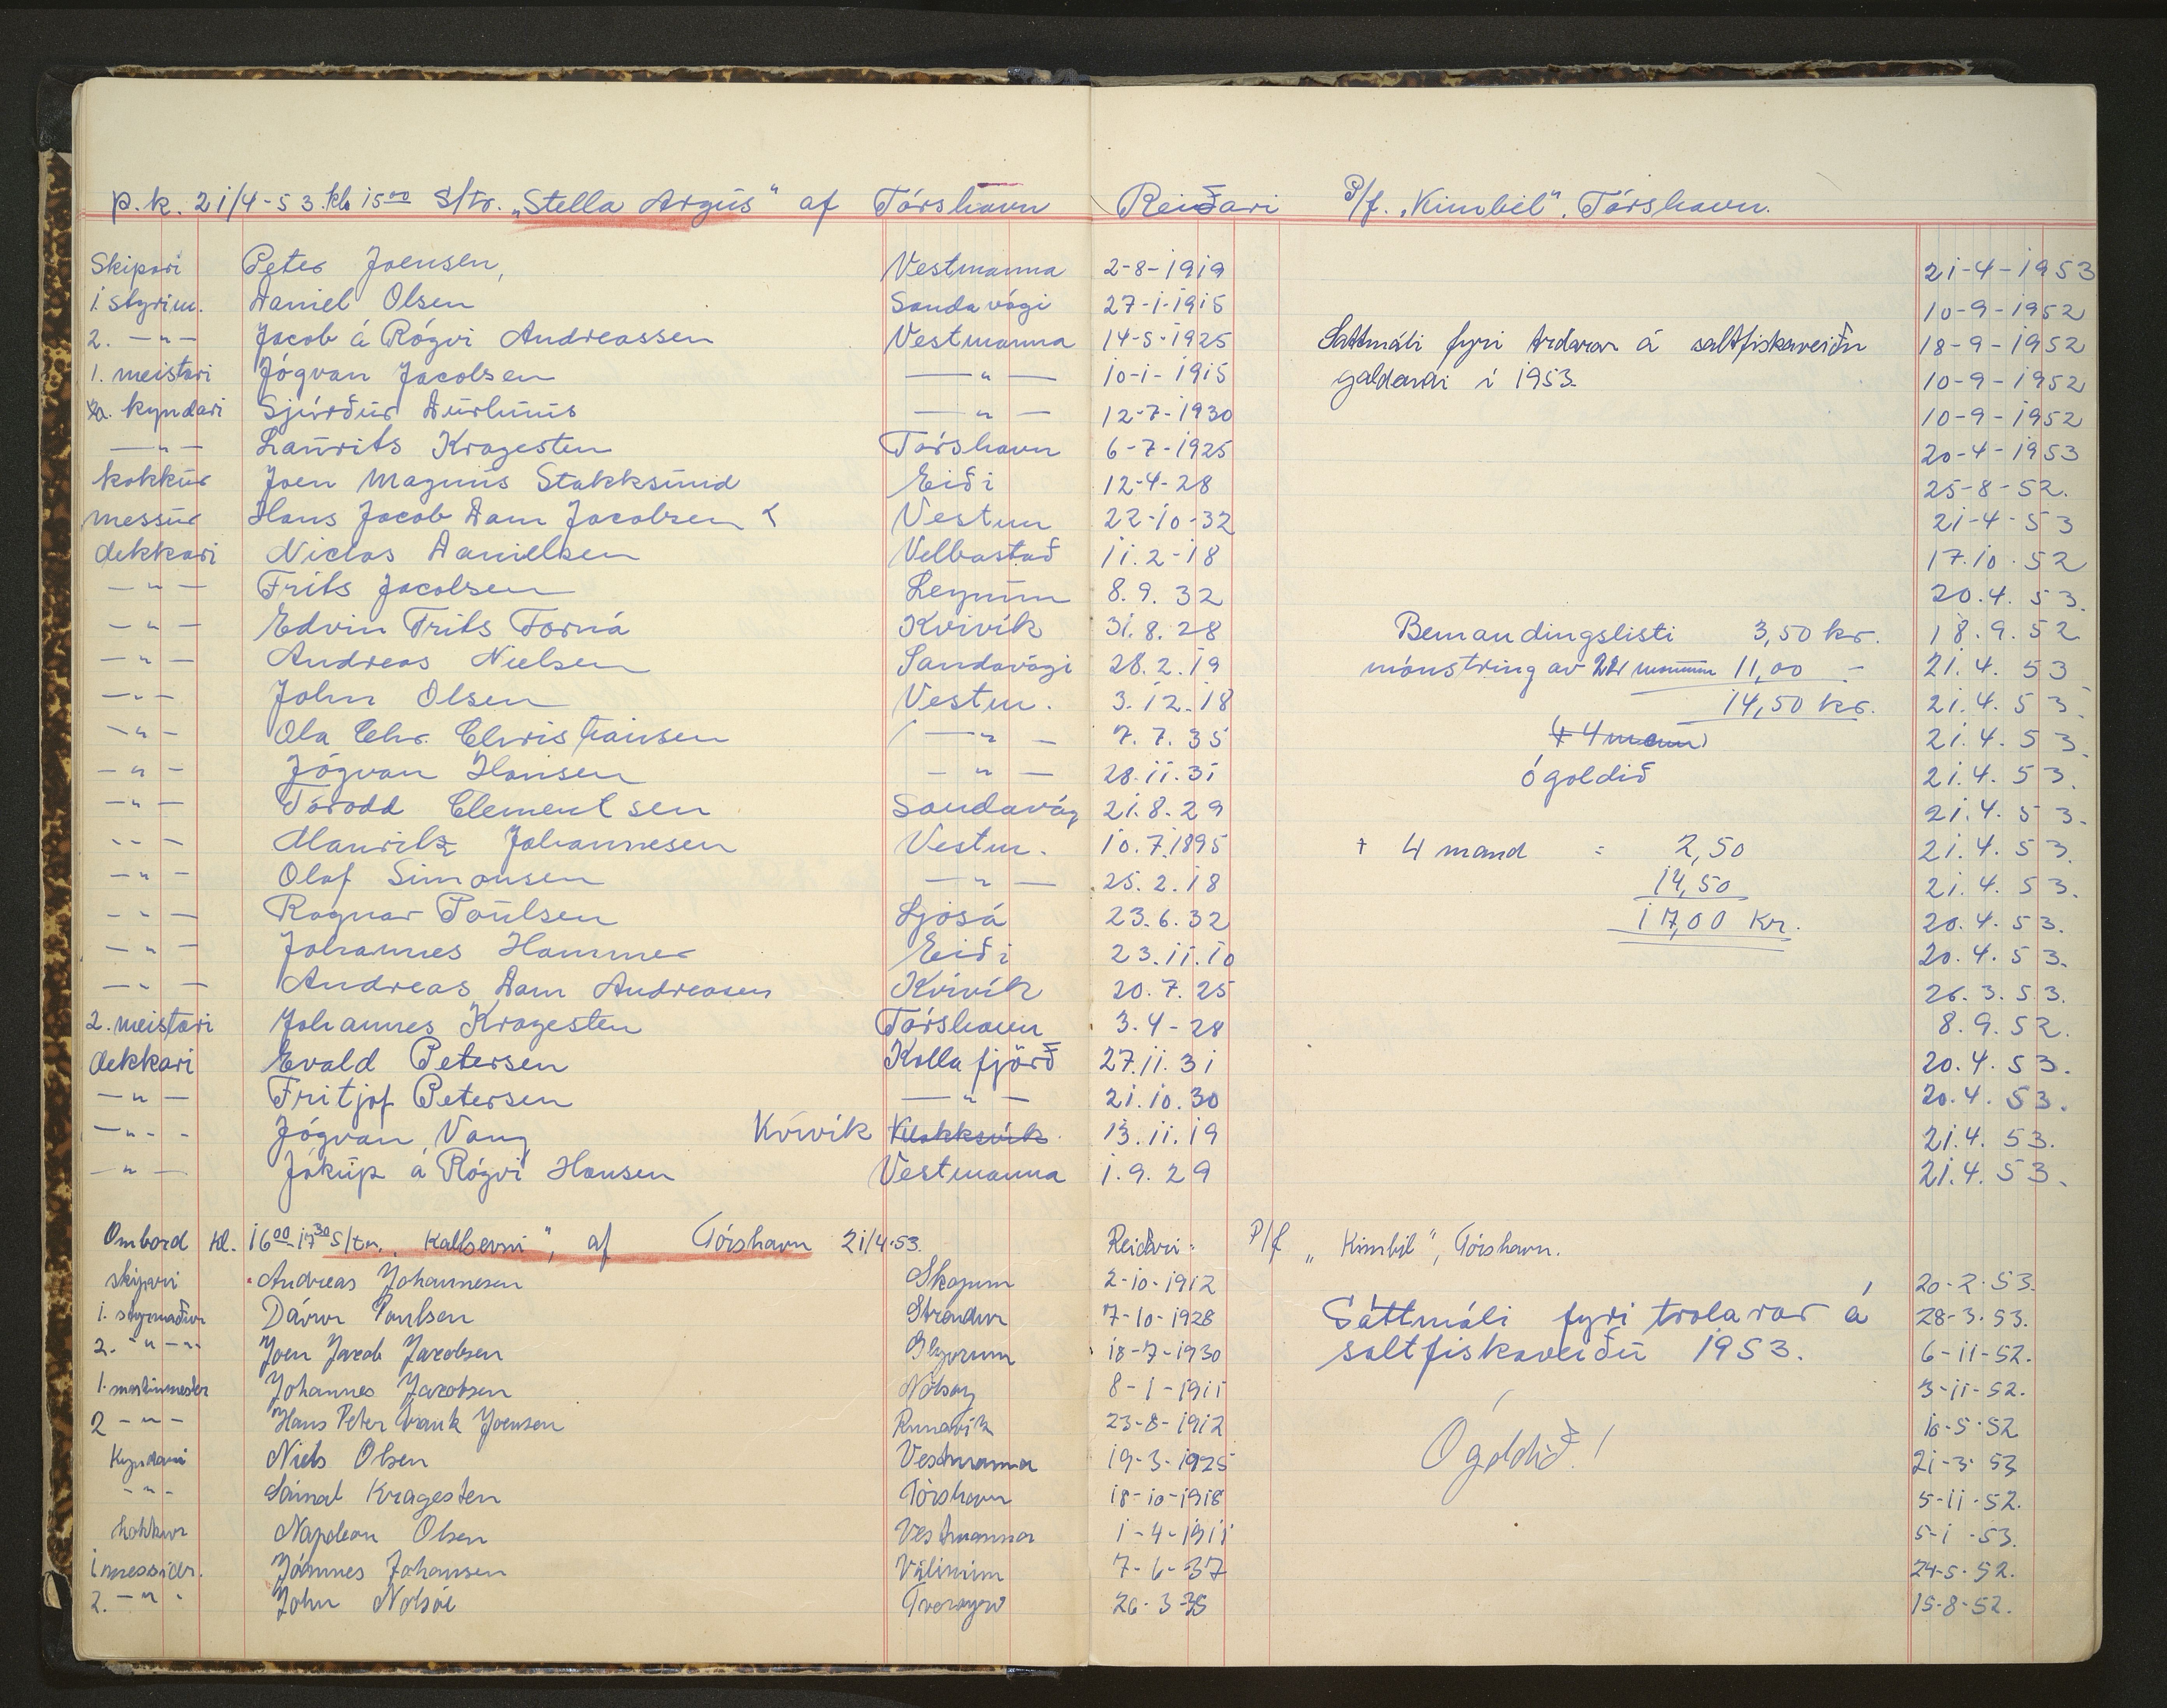 p.k. 21/4-53. kl. 15⁰⁰ S/tr. „Stella Argus“ af Tórshavn Reiðari P/f. „Kimbil“. Tórshavn.
Skipari Peter Joensen, Vestmanna 2-8-1919 21-4-1953
1. styrim. Daniel Olsen Sandavági 27-1-1915 10-9-1952
2. —〃— Jacob á Rógvi Andreassen Vestmanna 14-5-1925 Sáttmáli fyri trolarar á saltfiskaveiðu 18-9-1952
1. meistari Jógvan Jacobsen —〃— 10-1-1915 galdandi í 1953. 10-9-1952
kyndari Sjúrður Durhuus —〃— 12-7-1930 10-9-1952
—〃— Laurits Kragesten Tórshavn 6-7-1925 20-4-1953
kokkur Joen Magnus Stakksund Eiði 12-4-28 25-8-52.
messur Hans Jacob Dam Jacobsen Vestm 22-10-32 21-4-53
dekkari Niclas Danielsen Velbastað 11.2-18 17.10.52
—〃— Frits Jacobsen Leynum 8.9.32 20.4.53.
—〃— Edvin Frits Forná Kvívík 31.8.28 Bemandingslisti 3,50 kr. 18.9.52
—〃— Andreas Nielsen Sandavági 28.2.19 mónstring av 22 monnum 11,00 - 21.4.53
—〃— John Olsen Vestm. 3.12.18 14,50 kr. 21.4.53
—〃— Ola Chr. Christiansen —〃— 7.7.35 + 4 mann 21.4.53.
—〃— Jógvan Hansen —〃— 28.11.31 ógoldið 21.4.53.
—〃— Tórodd Clementsen Sandavág 21.8.29 21.4.53.
—〃— Mauritz Johannesen Vestm. 10.7.1895 + 4 mand = 2,50 21.4.53.
—〃— Olaf Simonsen —〃— 25.2.18 14,50 21.4.53.
—〃— Ragnar Poulsen Ljósá 23.6.32 17,00 Kr. 20.4.53.
—〃— Johannes Hammer Eiði 23.11.10 20.4.53.
—〃— Andreas Dam Andreasen Kvívík 20.7.25 26.3.53.
2. meistari Johannes Kragesten Tórshavn 3.4-28 8.9.52.
dekkari Evald Petersen Kollafjörð 27.11.31 20.4.53.
—〃— Fritjof Petersen —〃— 21.10.30 20.4.53.
—〃— Jógvan Vang Kvívík Klakksvík 13.11.19 21.4.53.
—〃— Jákup á Rógvi Hansen Vestmanna 1.9.29 21.4.53.
Ombord Kl. 16⁰⁰-17³⁰ S/tr. „Kallsevni“, af Tórshavn 21/4-53. Reiðari: P/f „Kimbil“, Tórshavn.
skipari Andreas Johannesen Skopum 2-10-1912 20-2-53.
1. styrmaður Dávur Poulsen Strendur 7-10-1928 Sáttmáli fyri trolarar á 28-3-53.
2. —〃— Joen Jacob Jacobsen Glyvrum 18-7-1930 saltfiskaveiðu 1953. 6-11-52.
1. maskinmester Johannes Jacobsen Nólsoy 8-1-1911 3-11-52.
2 —〃— Hans Peter Frank Joensen Runavík 23-8-1912 16-5-52
Kyndari Niels Olsen Vestmanna 19-3-1925 Ógoldið! 21-3-53
—〃— Sámal Kragesten Tórshavn 18-10-1918 5-11-52.
kokkur Napoleon Olsen Vestmanna 1-4-1911 5-1-53.
1 messudr. Jóannes JohansenVálinum 7-6-37 24-5-52.
2. —〃— John Nolsöe Tveroyri 26-3-35 15-8-52.